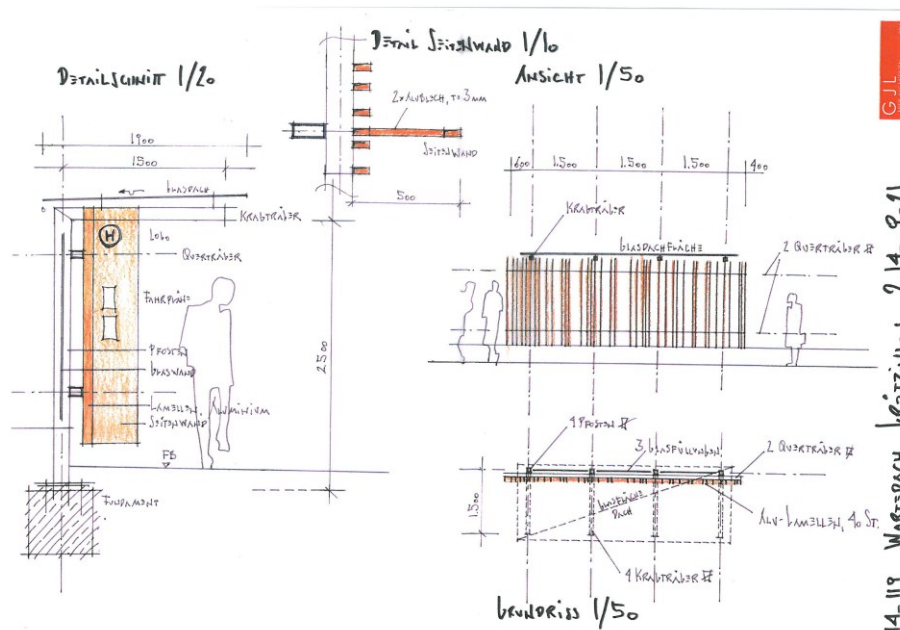 DETAILSCHNITT 1/20
1900
1500
GLASDACH
KRAGTRÄGER
LOGO
H
QUERTRÄGER
FAHRPLÄNE
PFOSTEN
GLASWAND
LAMELLEN, ALUMINIUM
SEITENWAND
FB
FUNDAMENT
2500
DETAIL SEITENWAND 1/10
2x ALUBLECH, T=3MM
SEITENWAND
500
ANSICHT 1/50
600 1.500 1.500 1.500 400
KRAGTRÄGER
GLASDACHFLÄCHE
2 QUERTRÄGER
4 PFOSTEN
3 GLASFÜLLUNGEN
2 QUERTRÄGER
1.500
DACH
ALU-LAMELLEN, 40 ST.
4 KRAGTRÄGER
GRUNDRISS 1/50
GJL
14.119 WARTEDACH GRÖTZINGEN